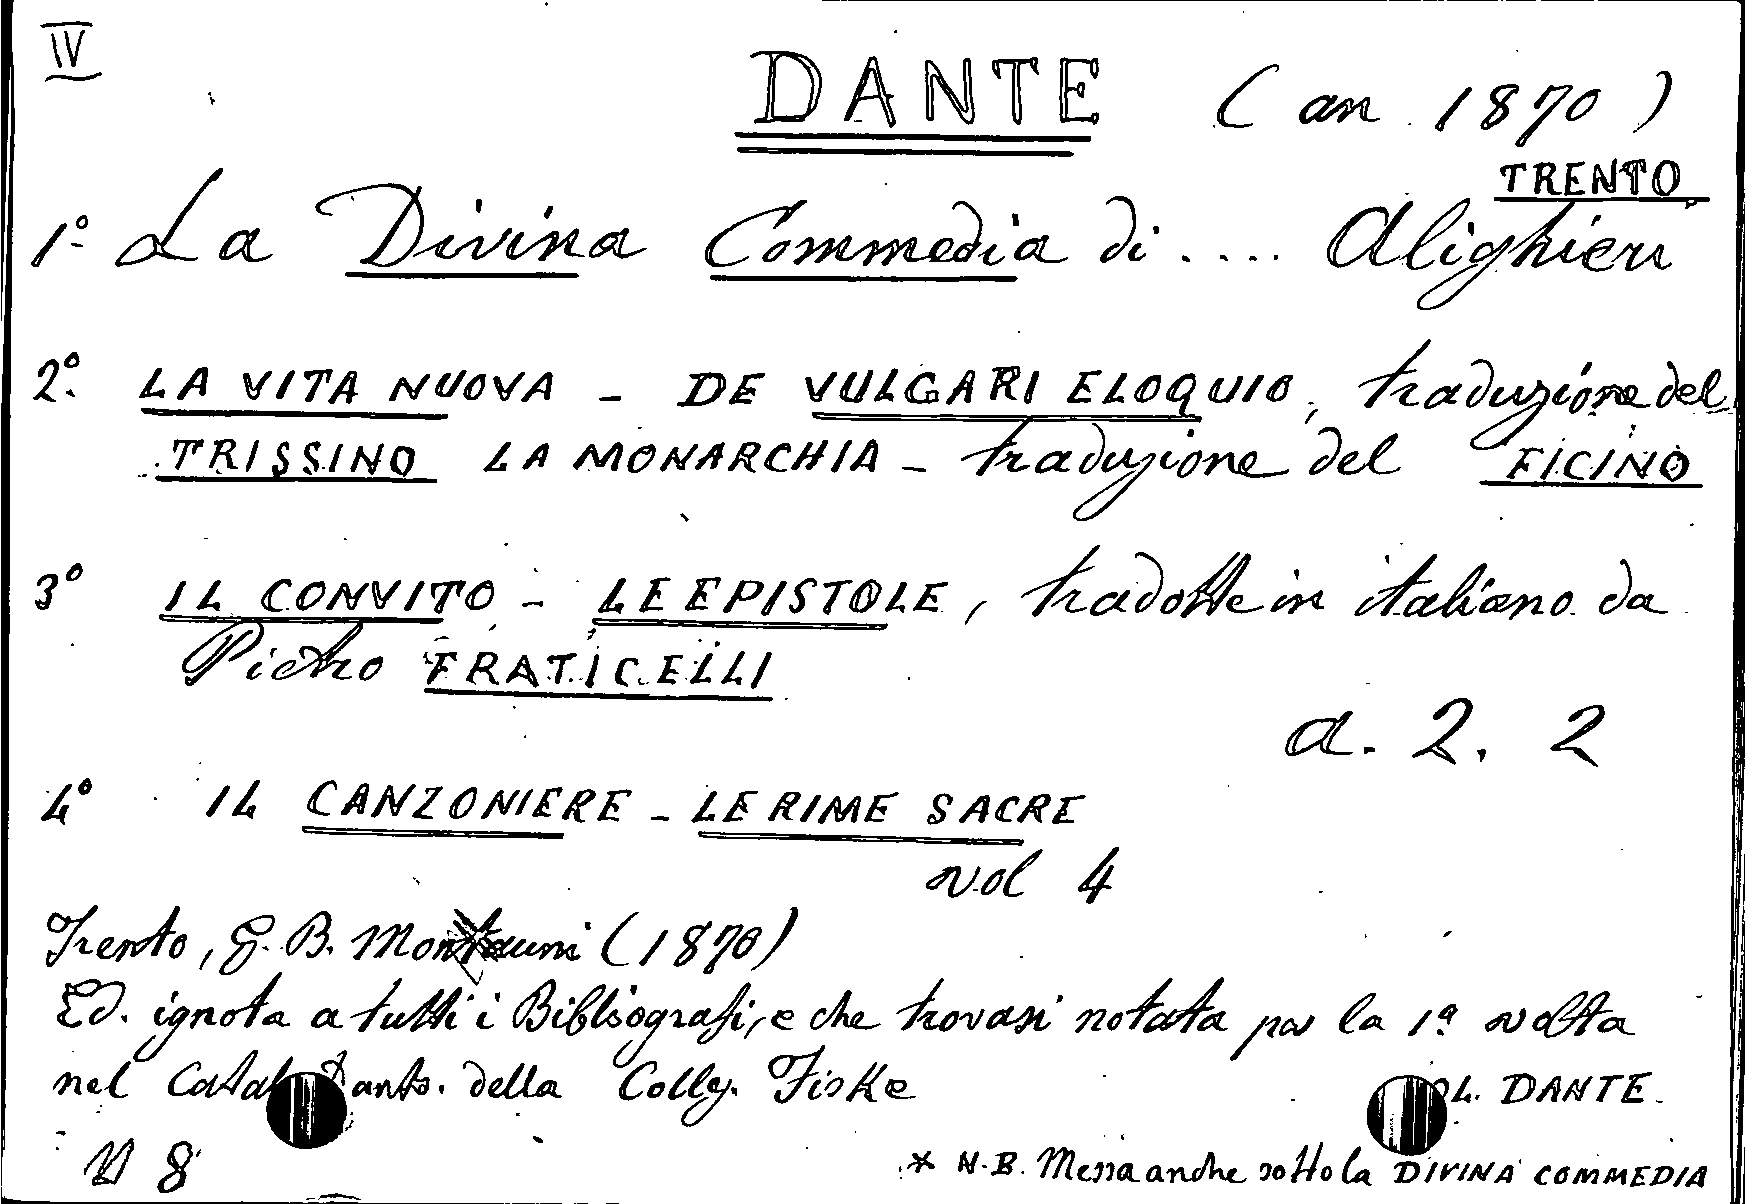 IV
DANTE (an 1870)
TRENTO
1º La Divina Commedia di .... Alighieri
2º. LA VITA NUOVA - DE VULGARI ELOQUIO, traduzione del
TRISSINO LA MONARCHIA - traduzione del FICINO
3º IL CONVITO - LE EPISTOLE, tradotte in italiano da
Pietro FRATICELLI
a. 2. 2
4º IL CANZONIERE - LE RIME SACRE
vol 4
Trento, G. B. (1870)
Ed. ignota a tutti i Bibliografi, e che trovasi notata per la 1ª volta
nel della Colleg. Fiske
L. DANTE
8
* N.B. Messa anche sotto la DIVINA COMMEDIA